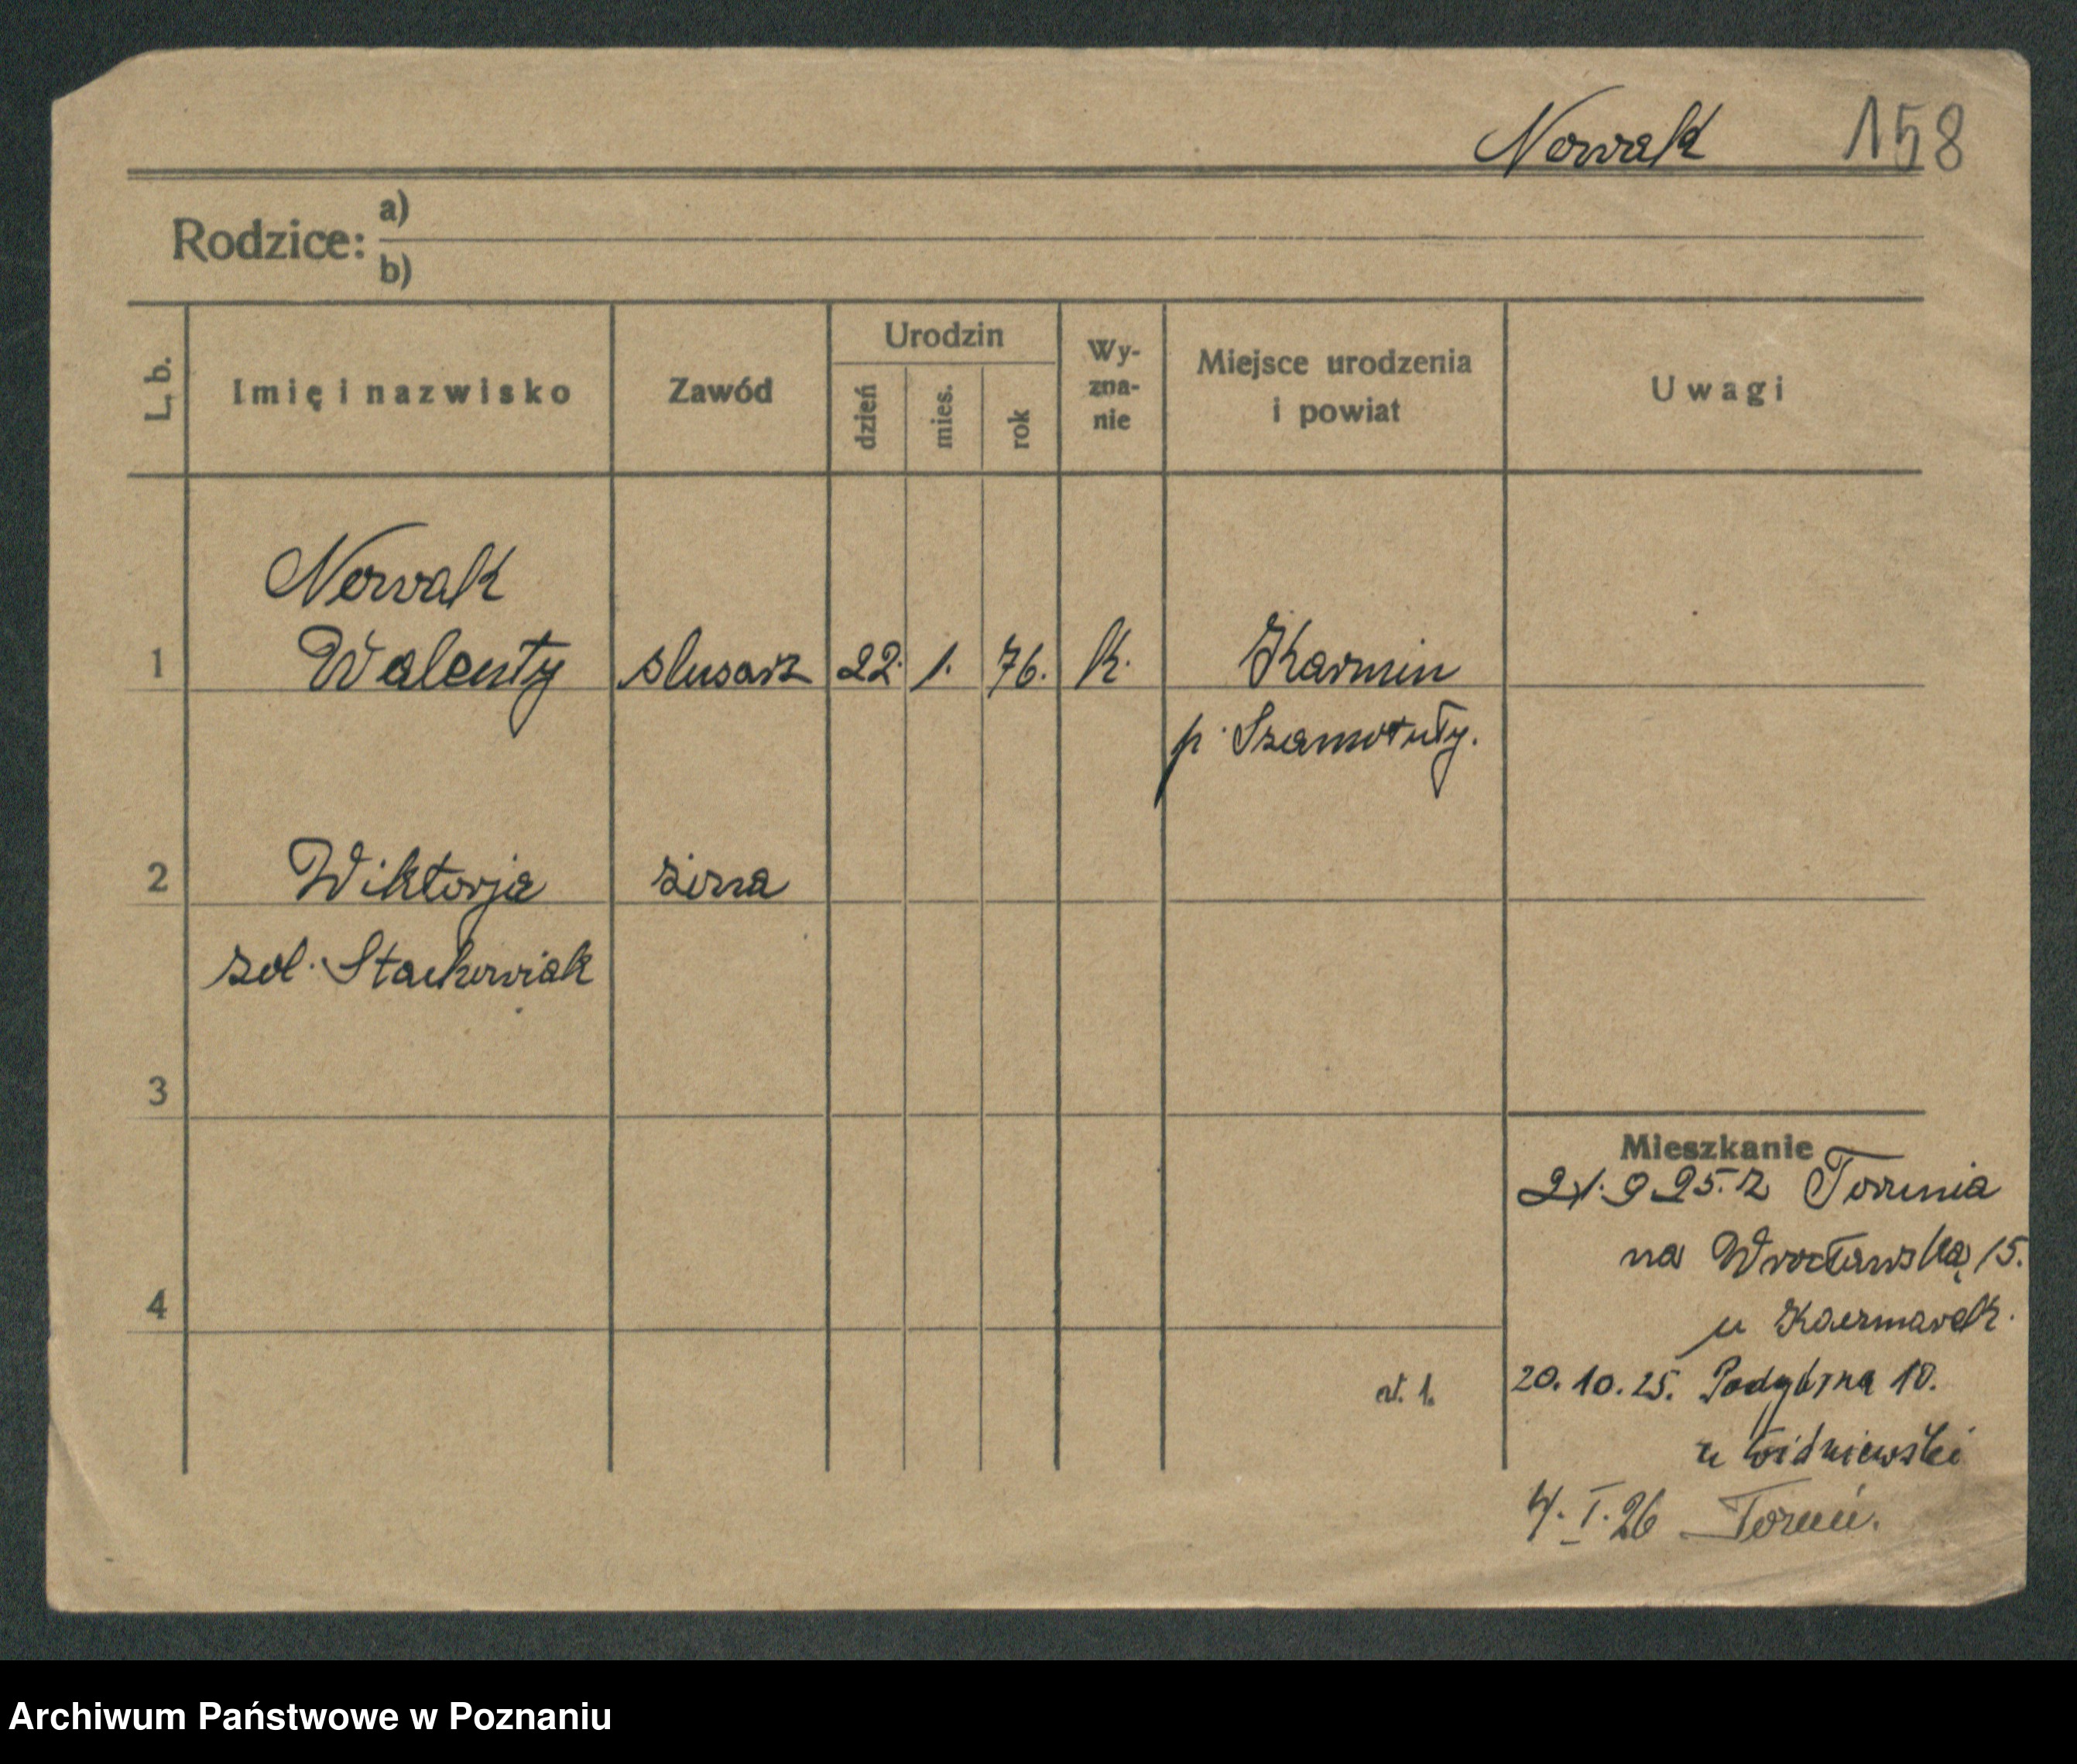 Nowak 158
Rodzice:
a)
b)
L. b.
Imię i nazwisko
Zawód
Urodzin
dzień
mies.
rok
Wy-
zna-
nie
Miejsce urodzenia
i powiat
Uwagi
Nowak
1 Walenty slusarz 22. 1. 76. k. Karmin
p. Szamotuły.
2 Wiktorja żona
zol. Stachowiak
3
Mieszkanie
21.9 25. z Torunia
na Wrocławską 15.
4
u Kaczmarek.
20.10.25. Podgórna 10.
u
4. I. 26 Toruń.
Archiwum Państwowe w Poznaniu